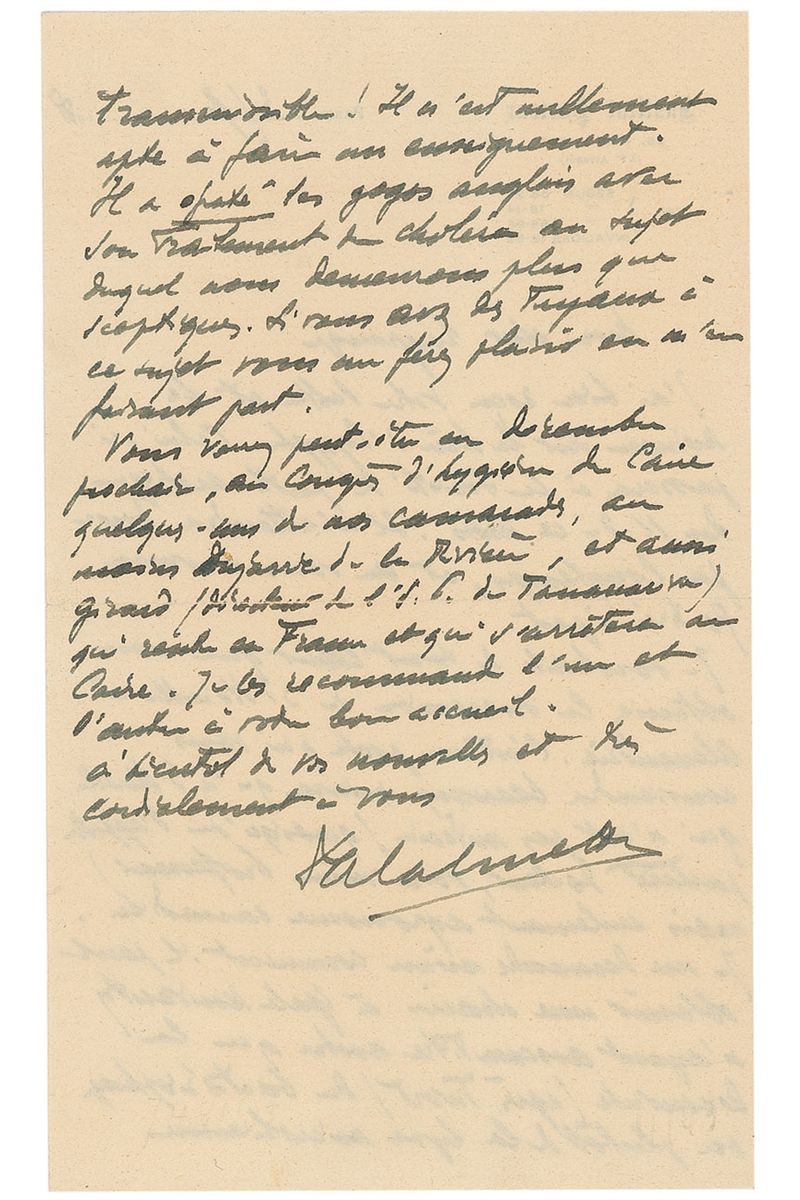 transmissible ! Il n'est nullement
apte à faire un enseignement.
Il a épaté les gogos anglais avec
son traitement du choléra au sujet
duquel nous demeurons plus que
sceptiques. Si vous avez des tuyaux à
ce sujet vous me ferez plaisir en m'en
faisant part.
Vous verrez peut-être en décembre
prochain, au Congrès d'hygiène du Caire
quelques-uns de nos camarades, au
moins Dujarric de la Rivière, et aussi
Girard (directeur de l'I. P. de Tananarive)
qui rentre en France et qui s'arrêtera au
Caire. Je les recommande l'un et
l'autre à votre bon accueil.
à bientôt de vos nouvelles et très
cordialement à vous
A Calmette